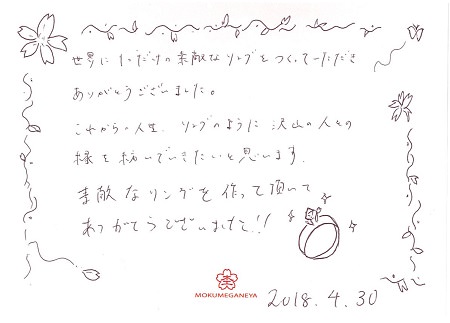 世界に1つだけの素敵なリングをつくっていただき
ありがとうございました。
これからの人生、リングのように沢山の人との
縁を紡いでいきたいと思います。
素敵なリングを作って頂いて
ありがとうございました!!
MOKUMEGANEYA
2018.4.30